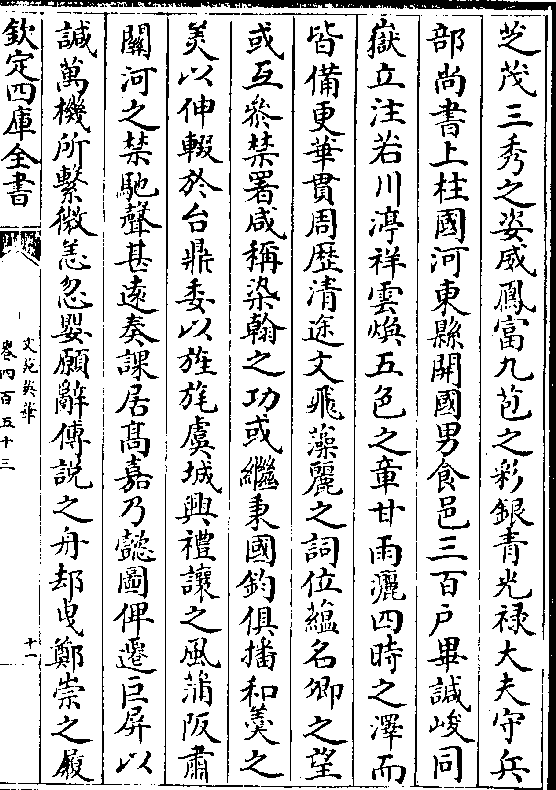 芝茂三秀之姿威鳳富九苞之彩銀青光禄大夫守兵
部尚書上柱國河東縣開國男食邑三百户畢諴峻同
嶽立注若川渟祥雲煥五色之章甘雨灑四時之澤而
皆備更華貫周歴清途文飛藻麗之詞位藴名卿之望
或互參禁署咸稱染翰之功或繼秉國鈞俱播和羹之
美以伸輟於台鼎委以旌旄虞城興禮讓之風蒲阪肅
關河之禁馳聲甚遠奏課居髙嘉乃懿圖俾遷巨屏以
諴萬機所繫微恙忽嬰願辭傅説之舟却曳鄭崇之履
欽定四庫全書
文苑英華
卷四百五十三
十一